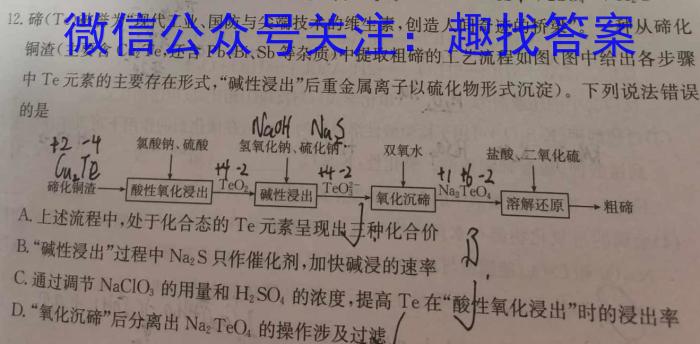 12. 碲(T 代工业、国防与尖端技术的维生素,创造人 从碲化
微信公众号关注：趣找答案
铜渣( 等杂质)中提取粗碲的工艺流程如图(图中给出各步骤
中 Te 元素的主要存在形式,“碱性浸出”后重金属离子以硫化物形式沉淀)。下列说法错误
的是
NaOH Na₂S
+2 -4 氯酸钠、硫酸 氢氧化钠、硫化钠 双氧水 盐酸、二氧化硫
Cu₂Te +4 -2 +4 -2 +1 +6 -2
碲化铜渣 酸性氧化浸出 TeO₂ 碱性浸出 TeO₃²⁻ 氧化沉碲 Na₂TeO₄ 溶解还原 粗碲
A. 上述流程中,处于化合态的 Te 元素呈现出三种化合价
B. “碱性浸出”过程中 Na₂S 只作催化剂,加快碱浸的速率
C. 通过调节 NaClO₃ 的用量和 H₂SO₄ 的浓度,提高 Te 在“酸性氧化浸出”时的浸出率
D. “氧化沉碲”后分离出 Na₂TeO₄ 的操作涉及过滤